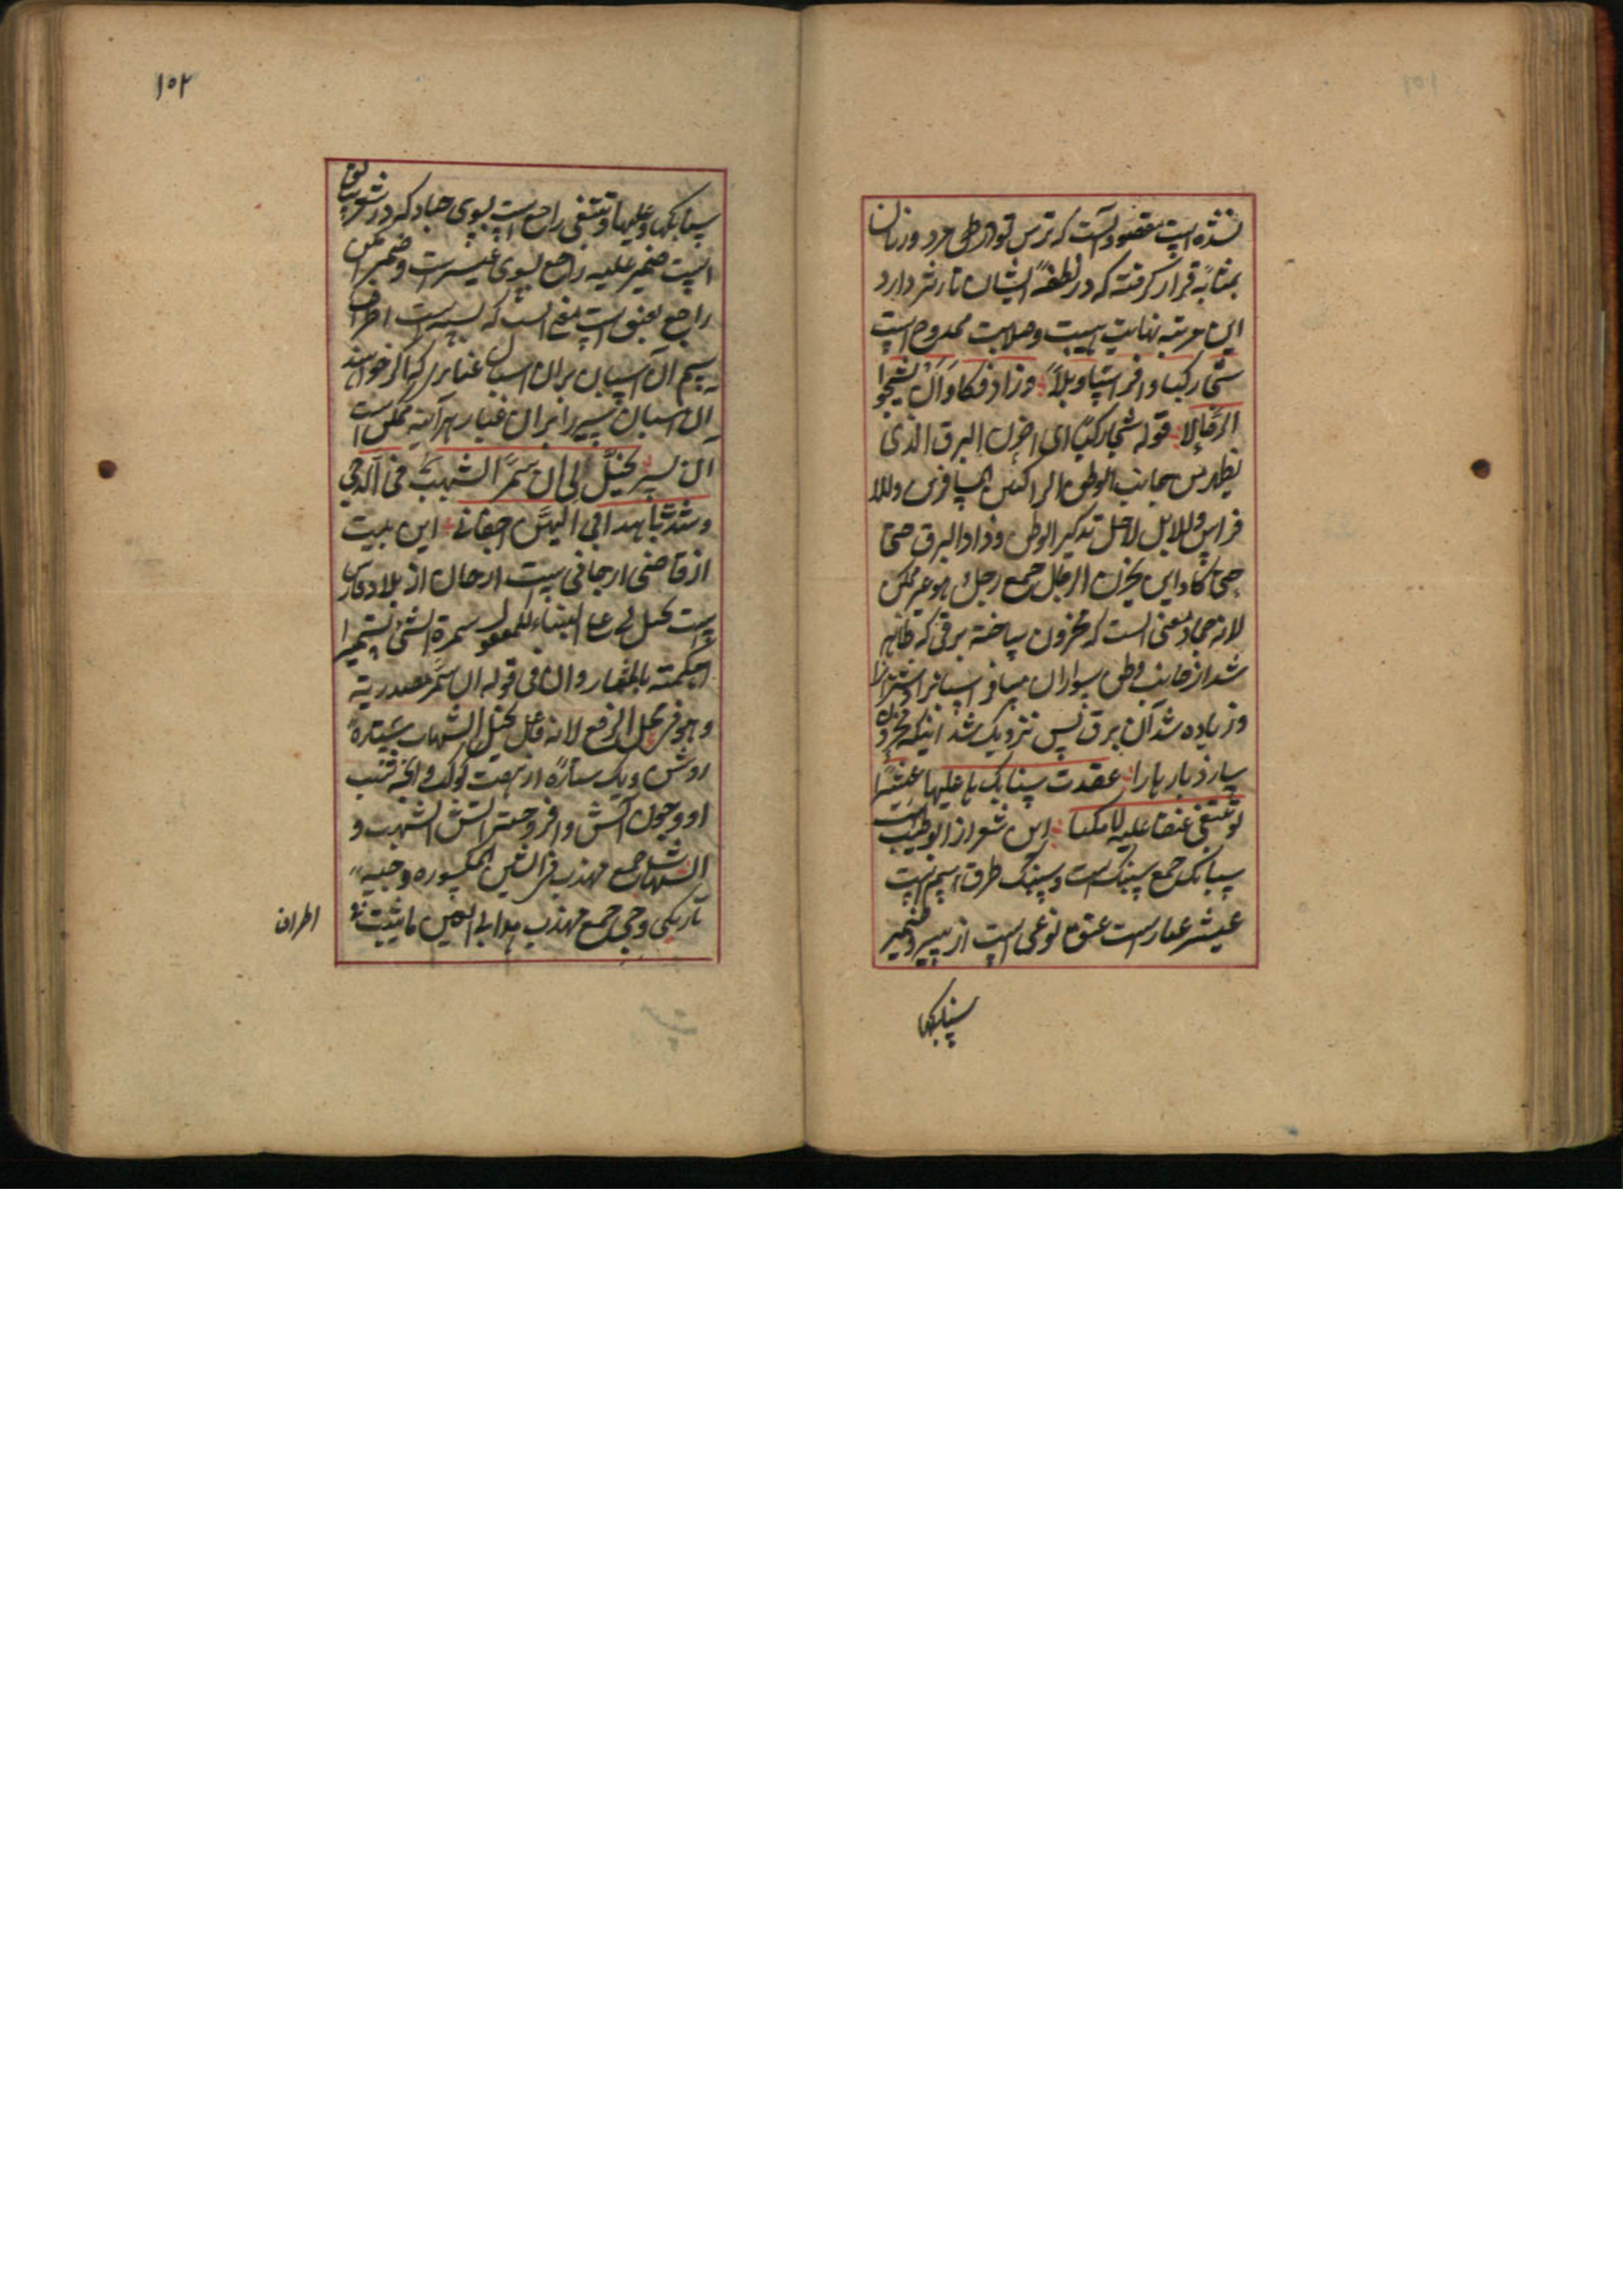 نشده است مقصود آنست که ترس تو در طی مرد و زنان
بمثابه قرار گرفته که در نطفهٔ ایشان تاثیر دارد
این مرتبه نهایت هیبت و صلابت ممدوح است
شجا رکبا وافراسا وابلا وزاد فکاد ان یشجوا
الرحالا قوله شجا رکبا ای احزن البرق الذی
یظهر من جانب الوطن الراکبین المسافرین وللا
فراس وللابل لاجل تذکیر الوطن وزاد البرق حتی
حتی کاد این یحزن الرحل جمع رحل و هو غیر ممکن
لانه جماد معنی آنست که محزون ساخته برقی که ظاهر
شد از جانب وطن سواران مسافر اسپانرا و شترانرا
و زیاده شد آن برق پس نزدیک شد اینکه محزون
سازد بار بارا عقدت سنابک ها علیها عثیرا
لو تبتغی عنقا علیه لامکنا این شعر از ابوطیب است
سنابک جمع سنبک است و سنبک طرف سم است
عیثر غبارست عنق نوعی است از سیر و ضمیر
سنابکها
۱۰۲
سنابکها و علیها و تبتغی راجع است بسوی جیاد که در شعر سابق
است ضمیر علیه راجع بسوی عیثرست و ضمیر امکن
راجع بعنق است معنی آنست که بسته است اطراف
سم آن اسپان بران اسپان غباری که اگر خواهند
آن اسپان سیر را بران غبار هرآینه ممکن است
آن سیر یخیل لی ان سمر الشهب فی الدجی
و شدت باهدابی الیهن اجفانی این بیت
از قاضی ارجانی ست ارجان از بلاد فارس
ست یخیل لی علی البناء للمفعول سمرة الشئ تسمیرا
احکمته بالمسمار وان فی قوله ان سمر مصدریة
وهو فی محل الرفع لانه فاعل یخیل الشهاب ستاره
روشن و یک ستاره از هفت کوکب و انچه قلب
او و چون آتش و افروختن آتش الشهب و
الشهبان جمع مهذب فرالغین المکسوره و جیه
تاریکی و جی جمع مهذب هدابی العین ما ینبت علی
اطراف